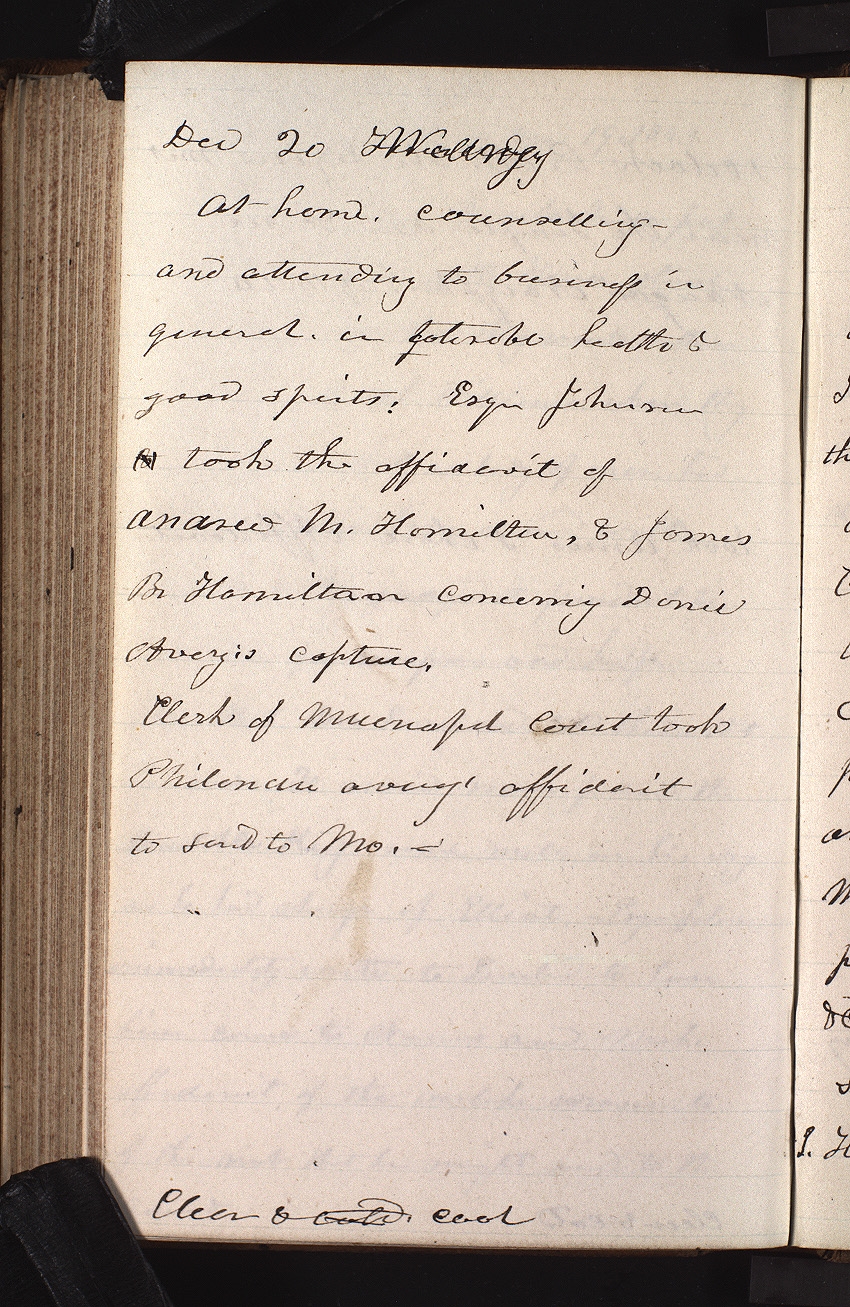 Dec 20 Wednsdy
At home. counselling—
and attending to business in
general. in tolerable health &
good spirits; Esqr Johnson
took the affidavit of
Andrew M. Hamilton, & James
Br Hamilton concerning Danil
Avery's capture.
Clerk of Municapel Court took
Philander averys' affidavit
to send to Mo. =
Clear & cold. cool
th